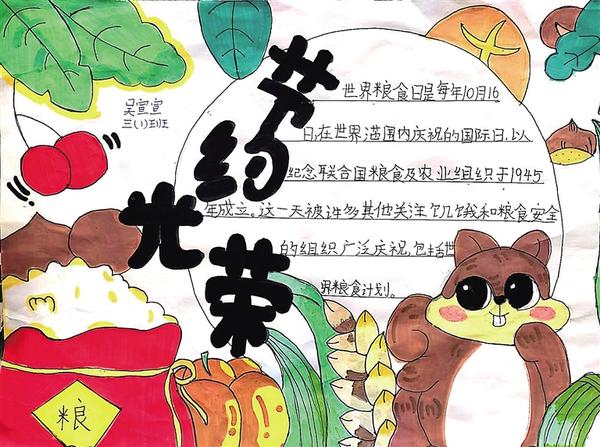 节约
光荣
吴宣宣
三(1)班
世界粮食日是每年10月16
日,在世界范围内庆祝的国际日,以
纪念联合国粮食及农业组织于1945
年成立。这一天被许多其他关注饥饿和粮食安全
的组织广泛庆祝,包括世
界粮食计划。
粮